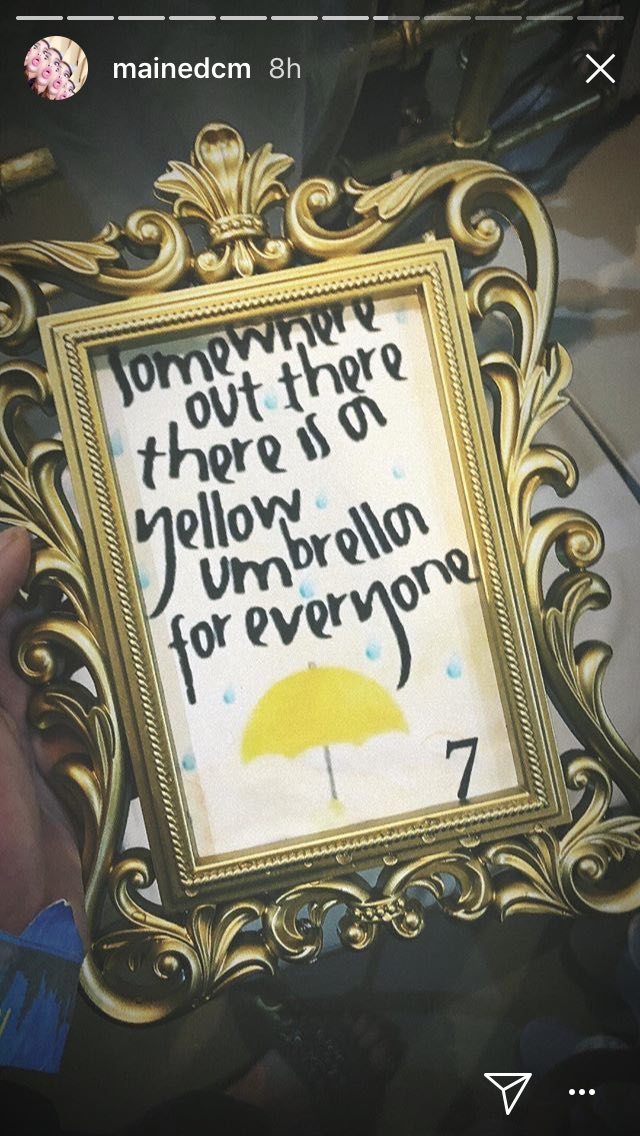 mainedcm 8h
somewhere
out there
there is a
yellow
umbrella
for everyone
7